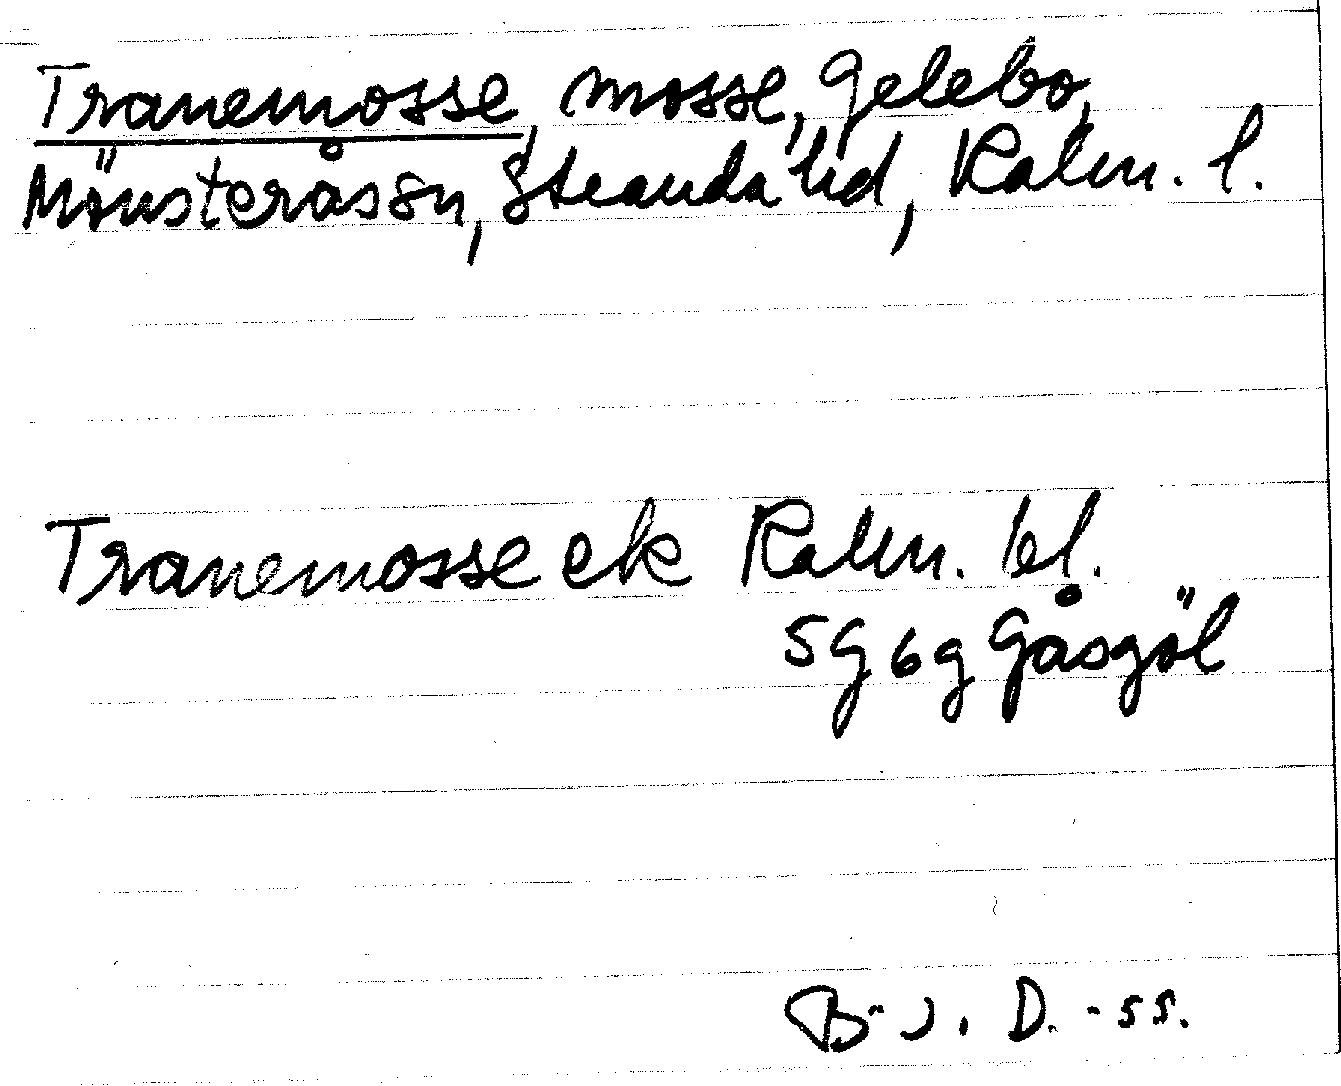 Tranemosse, mosse, Gelebo,
Mönsterås sn, Stranda hd, Kalm. l.
Tranemosse ek Kalm. bl.
5G6g Gåsgöl
B. J. D. -55.